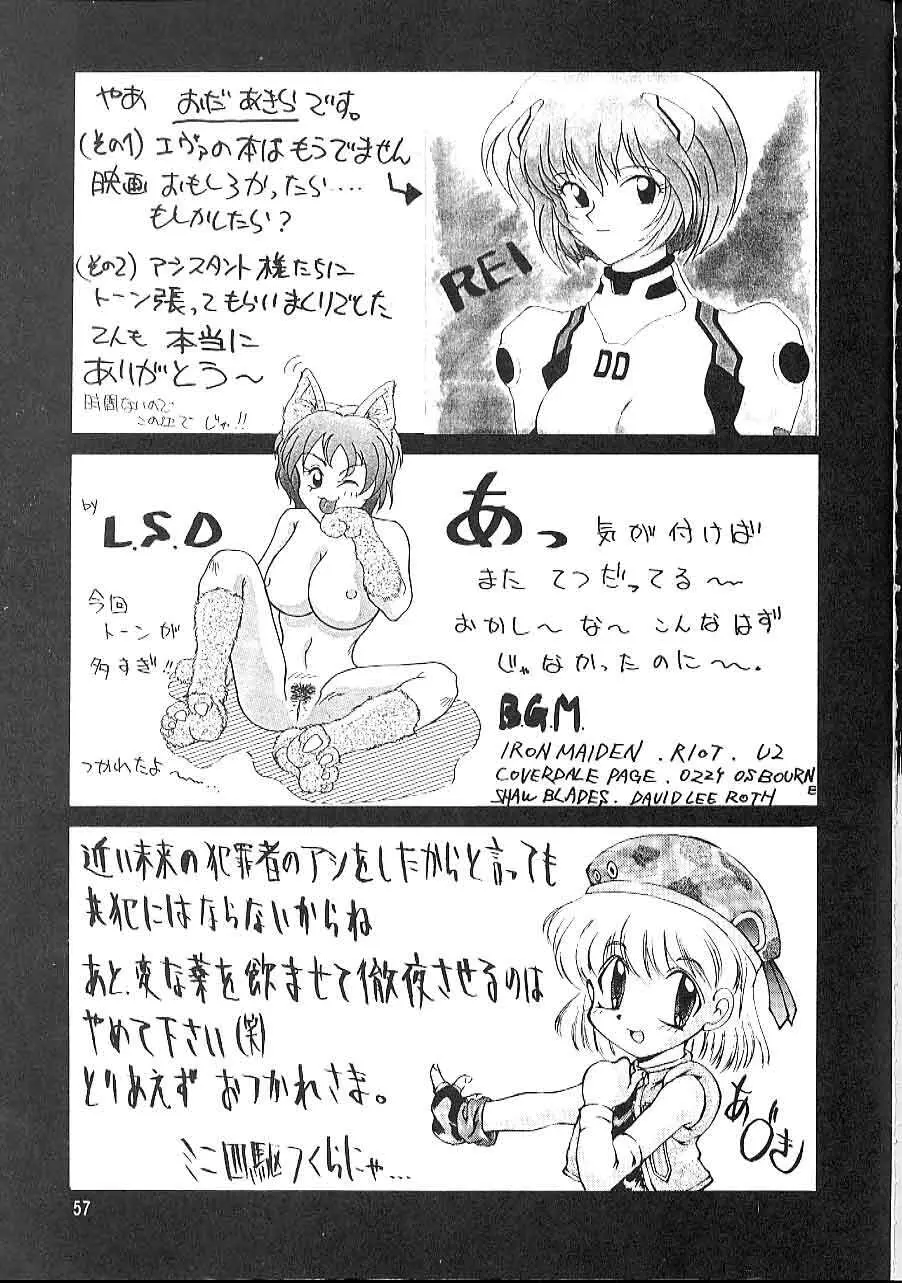 やあ おだ あきら です。
(その1) エヴァの本はもうでません
映画 おもしろかったら‥‥
もしかしたら?
(その2) アシスタント様たちに
トーン張ってもらいまくりでした
でも 本当に
ありがとう〜
時間ないので
この辺で じゃ!!
REI
00
by
L.S.D
今回
トーンが
多すぎ!!
つかれたよ〜
あっ 気が付けば
また てつだってる〜
おかし〜 な〜 こんなはず
じゃなかったのに〜.
B.G.M.
IRON MAIDEN . RIOT . U2
COVERDALE PAGE . OZZY OSBOURNE
SHAW BLADES . DAVID LEE ROTH
近い未来の犯罪者のアシをしたからと言っても
共犯にはならないからね
あと、変な薬を飲ませて徹夜させるのは
やめて下さい(笑)
とりあえず おつかれさま。
ミニ四駆つくらにゃ...
あづき
57